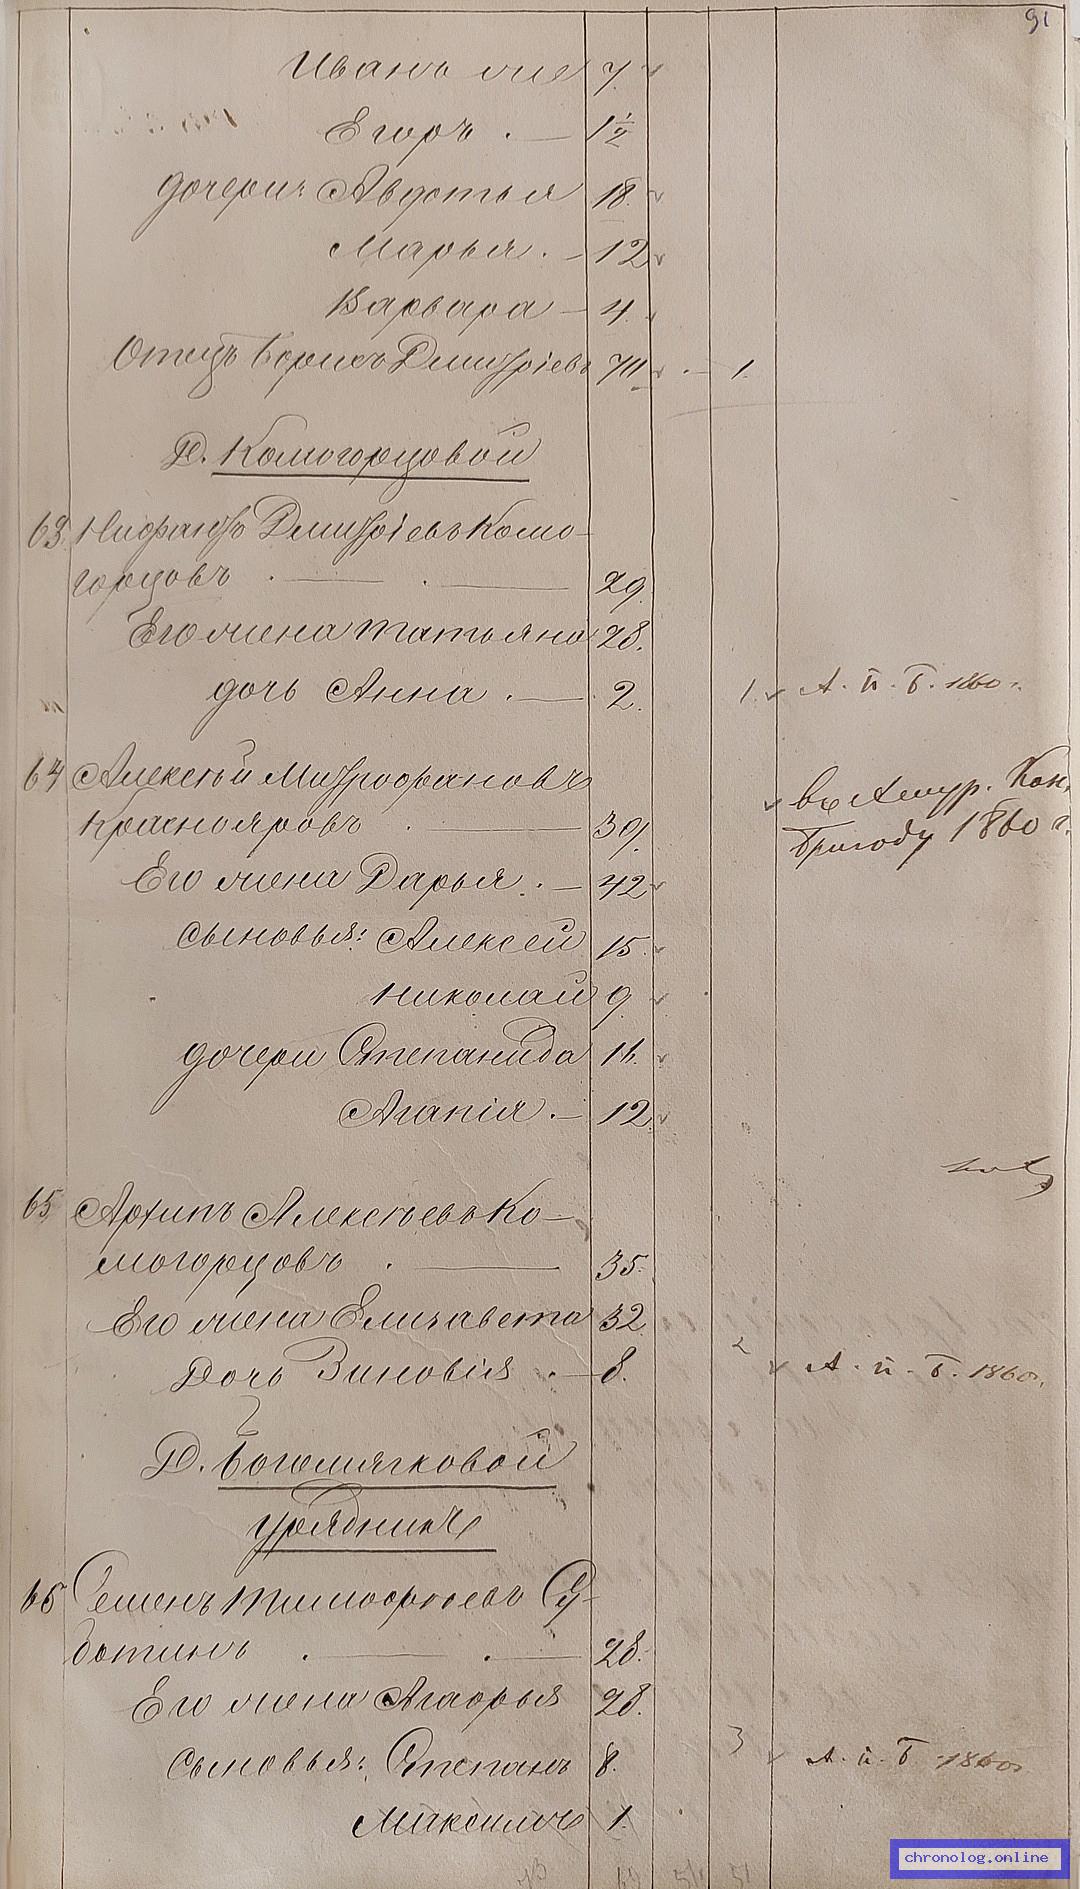 91
Иванъ 7.
Егоръ . — 1½
дочери: Авдотья 18.
Марья. — 12
Варвара — 4.
Отецъ Борисъ Дмитріевъ 1.
Д. Комогорцовой
63. Нифантъ Дмитріевъ Комо-
горцовъ . — . — 29.
Его жена Татьяна 28.
дочь Анна . — 2. 1. А. п. Б. 1860 г.
64 Алексѣй Митрофановъ
Краснояровъ . — 39. въ Амур. Кон.
бригаду 1860 г.
Его жена Дарья . — 42
сыновья: Алексей 15.
Николай 9.
дочери Степанида 16.
Агапія . — 12.
65 Архипъ Алексѣевъ Ко-
могорцовъ . — 35.
Его жена Елизавета 32.
Дочь Зиновія . — 8. 2 А. п. Б. 1860 г.
Д. Богомягковой
Урядникъ
66 Семенъ Тимофѣевъ Су-
ботинъ . — . — 28.
Его жена Агафья 28.
сыновья: Степанъ 8. 3 А. п. Б 1860 г.
Максимъ 1.
chronolog.online